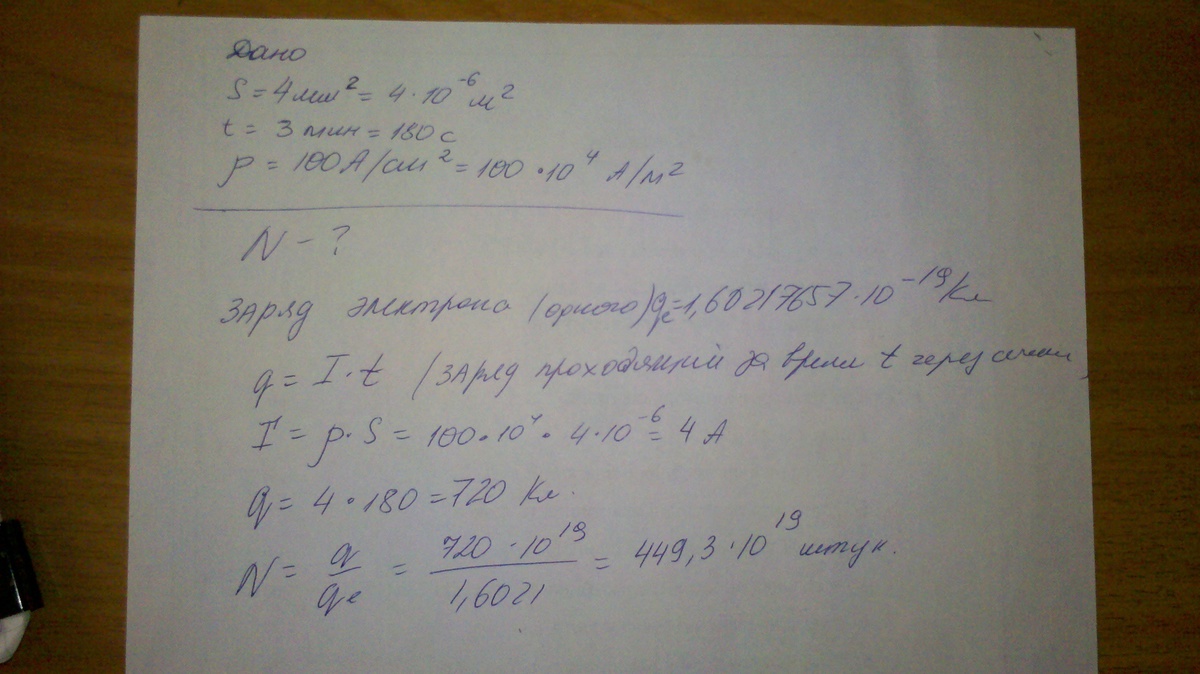 Дано
S = 4 мм² = 4 · 10⁻⁶ м²
t = 3 мин = 180 с
ρ = 100 А/см² = 100 · 10⁴ А/м²
N - ?
Заряд электрона (одного) qe = 1,60217657 · 10⁻¹⁹ Кл
q = I · t (заряд проходящий за время t через сечение
I = ρ · S = 100 · 10⁴ · 4 · 10⁻⁶ = 4 А
q = 4 · 180 = 720 Кл.
N = q/qe = 720 · 10¹⁹/1,6021 = 449,3 · 10¹⁹ штук.